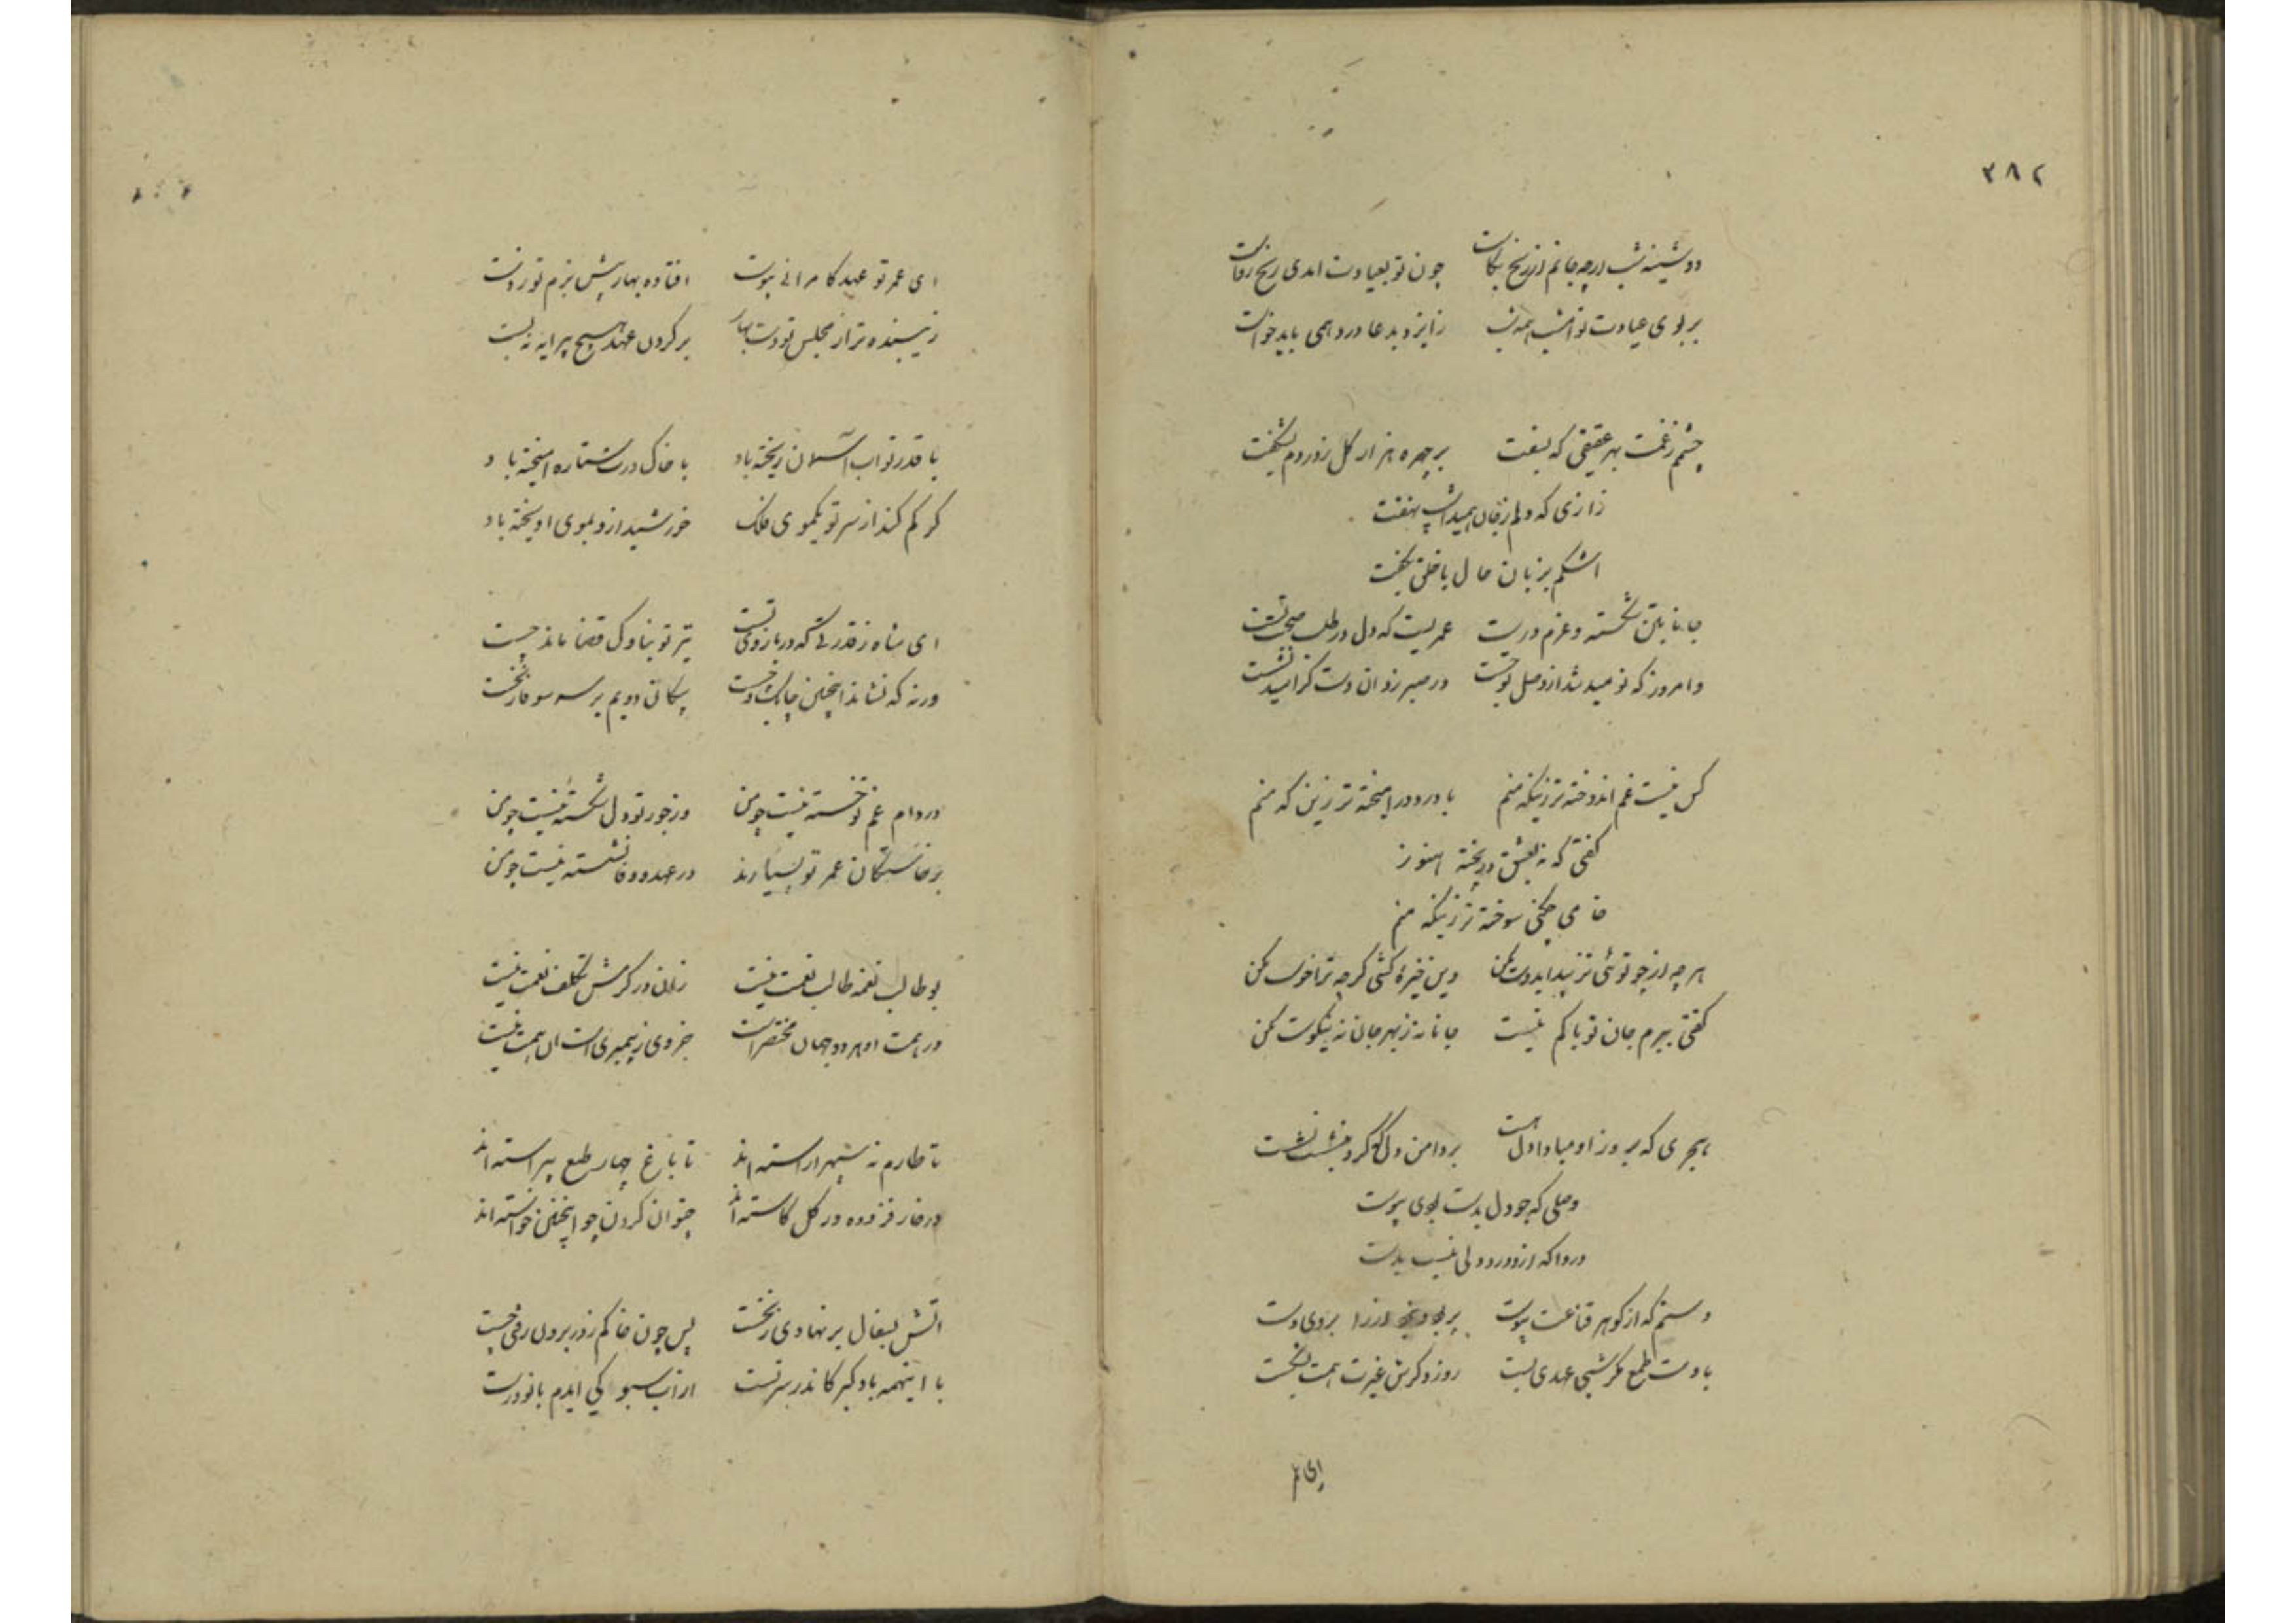 ۳۸۲
دوشینه شب ارچه جانم از رنج بکاست چون تو بعیادت امدی رنج رواست
بر بوی عیادت تو امشب همه شب زایزد بدعا درد همی باید خواست
چشم ز غمت بهر عقیقی که بسفت بر چهره هزار کل ز رازم بشکفت
رازی که دلم ز جان همیداشت نهفت
اشکم بزبان حال با خلق بگفت
جانا بتن شکسته و عزم درست عمریست که دل در طلب صحبت تست
وامروز که نومید شد از وصل تو جست در صبر زد ان دست کز امید بشست
کس نیست غم اندوخته تر زینکه منم با درد در امیخته تر زین که منم
کفتی که نه بعشق در پخته هنوز
خامی چکنی سوخته تر زینکه منم
هر چه از چو توئی نزیبد ایدوست مکن وین خیره کشی کرچه ترا خوست مکن
کفتی ببرم جان تو باکم نیست جانا نه ز بهر جان نه نیکوست مکن
هجری که بروز او مبادا دل مست بر دامن دل کو کرد بنشست
وصلی که چو دل بدست بوی پیوست
دردا که ازو درد دلی نیست بدست
دستم که از کوهر قناعت پیوست بروی دست
با دست طمع کرشبی عهدی بست روز دکرش غیرت همت بشکست
ای عمر تو عهد کامرانی پیوست افتاده بهار پیش بزم تو ز دست
زیبنده تر از مجلس تو دست بهار بر کردن عهد هیچ پیرایه نبست
با قدر تو اب اسمان ریخته باد با خاک درت ستاره امیخته باد
کر کم کند از سر تو یکموی فلک خورشید ازو بموی اویخته باد
ای شاه ز قدرتی که در بازوی تست تیر تو بناوک قضا ماند چست
ورنه که نشاند اینچنین چابک و چست پیکان دویم بر سر سوفار نخست
در دام غم تو خسته نیست چو من وز جور تو دل شکسته نیست چو من
برخاستکان عمر تو بسیارند در عهد وفا نشسته نیست چو من
بو طالب نعمه طالب نعمت نیست زان در کرمش تکلف نعمت نیست
در همت او هر دو جهان مختصرست جزوی ز پیمبری است ان همت نیست
تا طارم نه سپهر اراسته اند تا باغ چهار طبع پیراسته اند
در خار فزوده در کل کاسته اند چتوان کردن چو اینچنین خواسته اند
اتش بسفال بر نهادی ز نخست پس چون خاکم ز در برون رفتی چست
با اینهمه باد کبر کاندر سر تست از اب سبو کی ایدم با تو درست